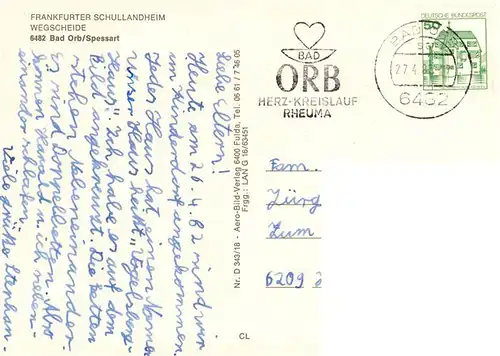 FRANKFURTER SCHULLANDHEIM
WEGSCHEIDE
6482 Bad Orb/Spessart
Liebe Eltern!
Heute am 26.4.82 sind wir
im Kinderdorf angekommen.
Jedes Haus hat einen Namen
unser Haus heißt "Vogelsberg-
Haus". Ich habe es auf dem
Bild angekreuzt. Die Betten
stehen Nebeneinander.
Es sind Doppelbetten. Also
können Harald u. ich neben-
einander schlafen.
Viele Grüße Stephan.
Nr. D 343/18 - Aero-Bild-Verlag 6400 Fulda, Tel. 06 61 / 7 36 05
Frgg.: LAN G 18/63451
CL
BAD
ORB
HERZ-KREISLAUF
RHEUMA
BAD ORB
27.4.
6482
DEUTSCHE BUNDESPOST
50
Fam.
Jürg
Zum
6209